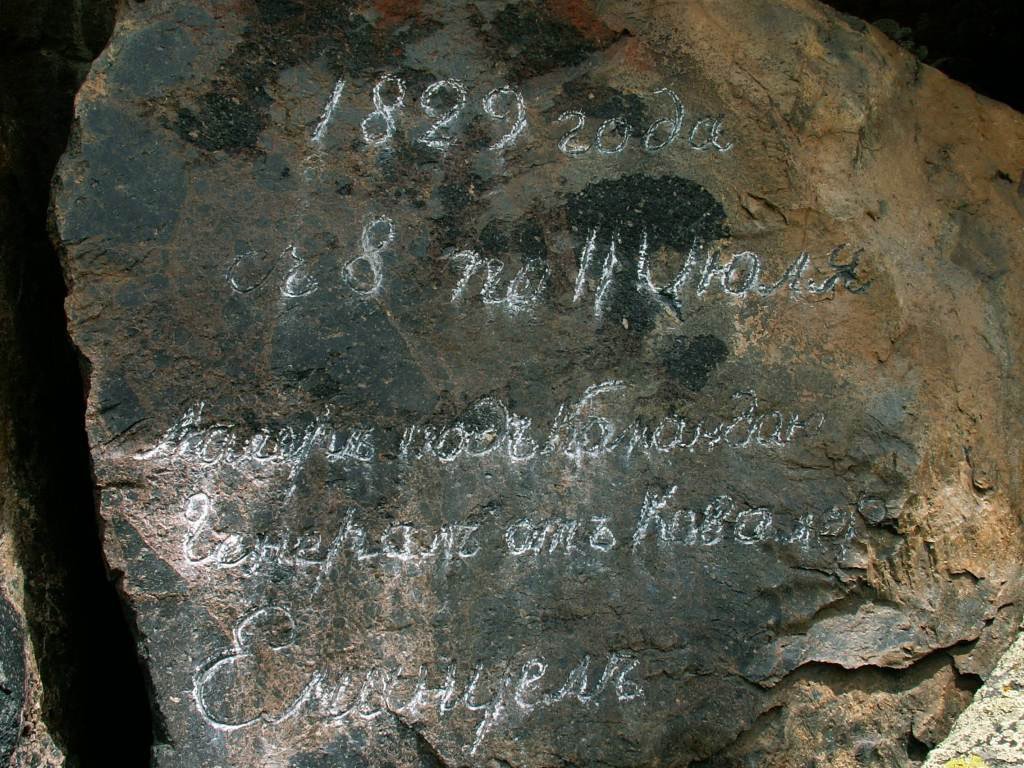 1829 года
съ 8 по 11 Июля
Лагерь подъ Командою
Генерала отъ Кавалер
Емануель